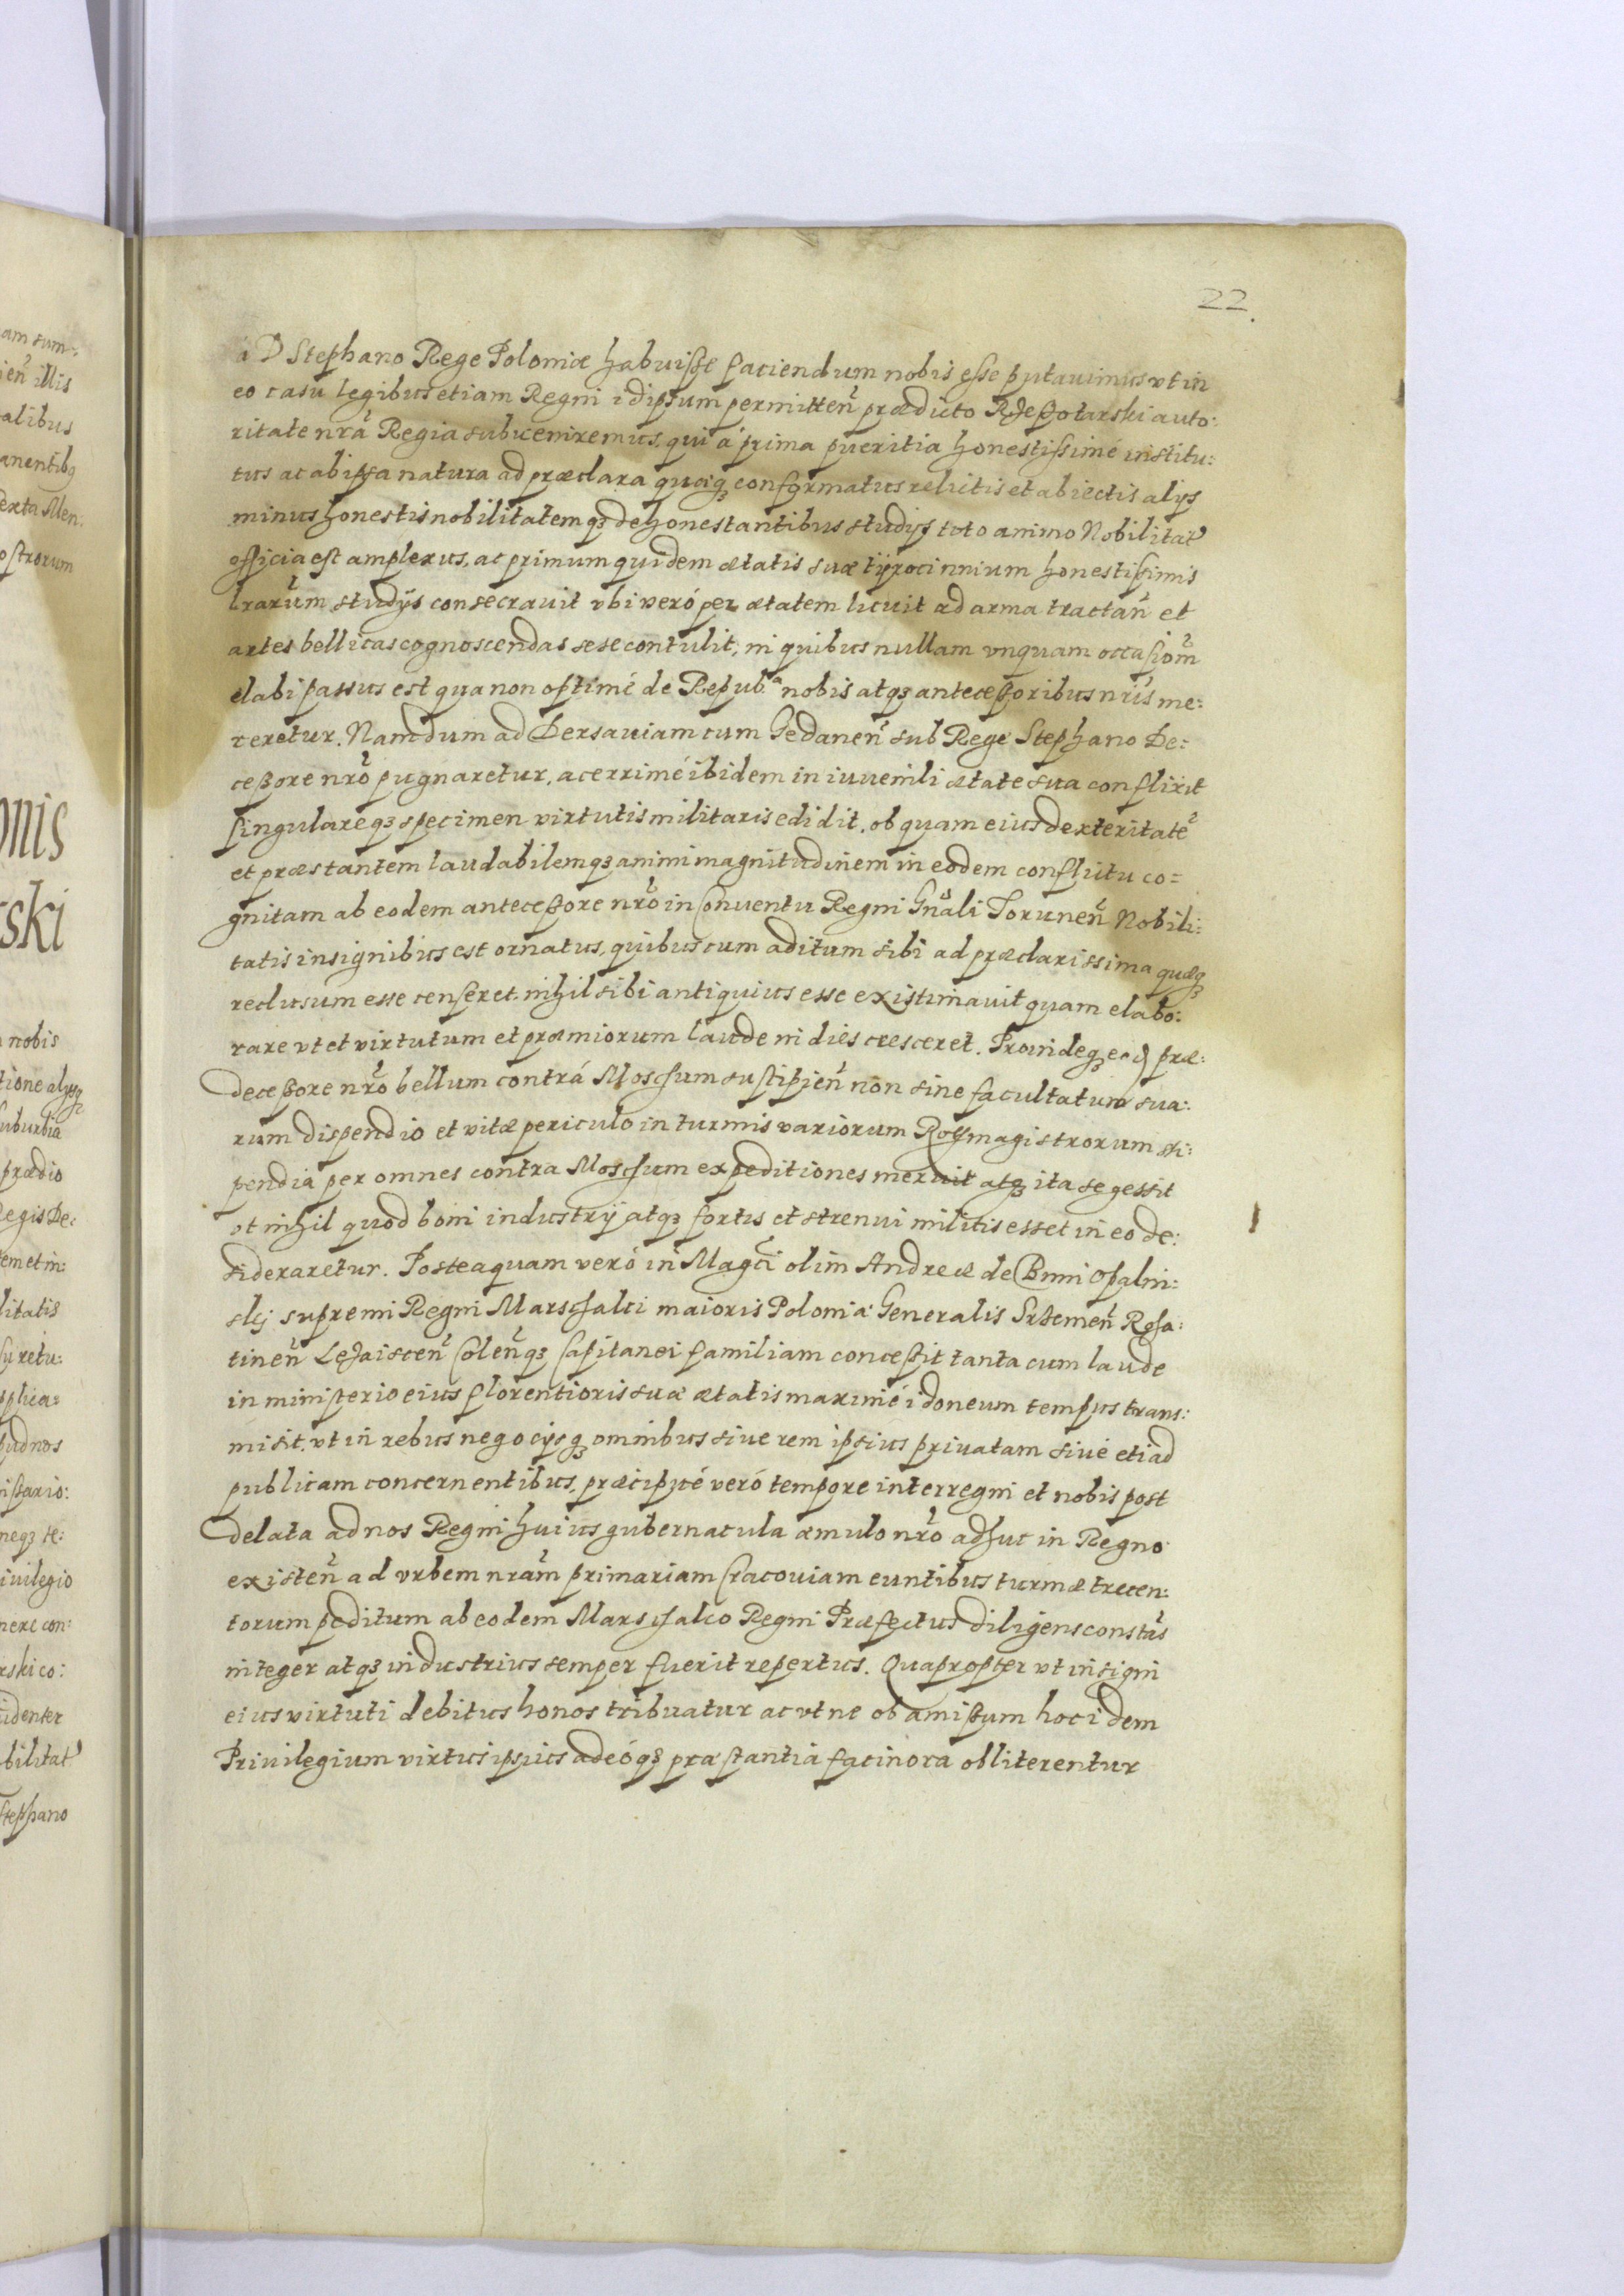 22.
à D Stephano Rege Poloniæ habuisse faciendum nobis esse putauimus vt in
eo casu legibus etiam Regni idipsum permitteñ prædicto Rzepotarski auto:
ritate nrã Regia subueniremus, qui á prima pueritia honestissimé institu:
tus ac ab ipsa natura ad præclara quæq; conformatus relictis et abiectis alijs
minus honestis nobilitatemq; dehonestantibus studijs toto animo Nobilitat̃
officia est amplexus, ac primum quidem ætatis suæ tÿrocinnium honestissimis
lrarũm studijs consecrauit vbi veró per ætatem licuit ad arma tractañ et
artes bellicas cognoscendas sese contulit, in quibus nullam vnquam occasiom̃
elabi passus est qua non optimé de Repub.ᵃ nobis atq; antecessoribus nris̃ me:
reretur. Nam dum ad Dersauiam cum Gedaneñ sub Rege Stephano De:
cessore nrõ pugnaretur, acerrimé ibidem in iuuenili ætate sua conflixit
singulareq; specimen virtutis militaris edidit, ob quam eius dexteritatẽ
et præstantem laudabilemq; animi magnitudinem in eodem conflictu co=
gnitam ab eodem antecessore nrõ in Conuentu Regni Gnãli Toruneñ Nobili:
tatis insignibus est ornatus, quibus cum aditum sibi ad præclarissima quæq;
reclusum esse censeret nihil sibi antiquius esse existimauit quam elabo:
rare vt et virtutum et præmiorum laude in dies cresceret. Proindeq; eod præ:
decessore nrõ bellum contrá Moschum suscipieñ non sine facultatum sua:
rum dispendio et vitæ periculo in turmis variorum Rothmagistrorum sti:
pendia per omnes contra Moschum expeditiones meruit atq; ita se gessit
vt nihil quod boni industrij atq; fortis et strenui militis esset in eo de:
sideraretur. Posteaquam veró in Magcĩ olim Andreæ de Bnin Opalin:
skij supremi Regni Marschalci maioris Poloniæ Generalis Srzemeñ Roha:
tineñ Leżaisceñ Coleñq; Capitanei familiam concessit tanta cum laude
in ministerio eius florentioris suæ ætatis maximé idoneum tempus trans:
misit, vt in rebus negocijsq; omnibus siue rem ipsius priuatam siué etiad
publicam concernentibus, præcipué veró tempore interregni et nobis post
delata ad nos Regni huius gubernacula æmulo nrõ adhuc in Regno
existeñ ad vrbem nrãm primariam Cracouiam euntibus turmæ trecen:
torum peditum ab eodem Marschalco Regni Præfectus diligens constãs
integer atq; industrius semper fuerit repertus. Quapropter vt insigni
eius virtuti debitus honos tribuatur ac vt ne ob amissum hoc idem
Priuilegium virtus ipsius adeóq; præstantia facinora obliterentur